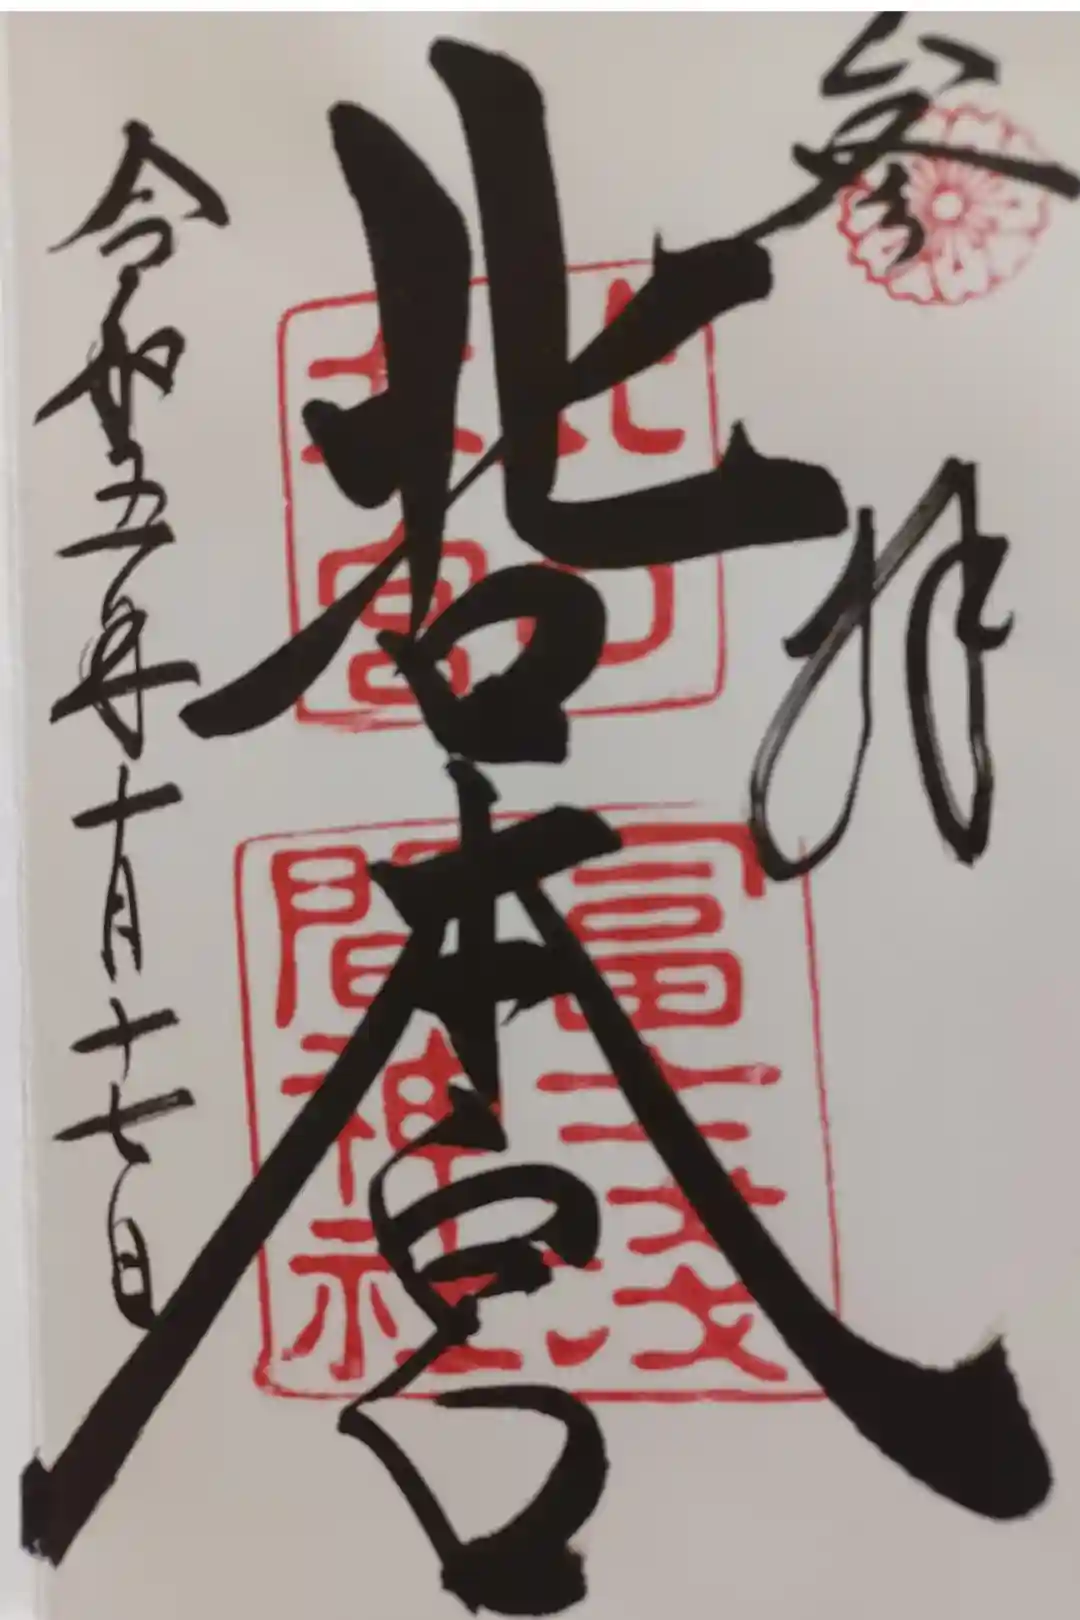 参拝
北口本宮
令和五年十月十七日
北口
本宮
冨士浅
間神社